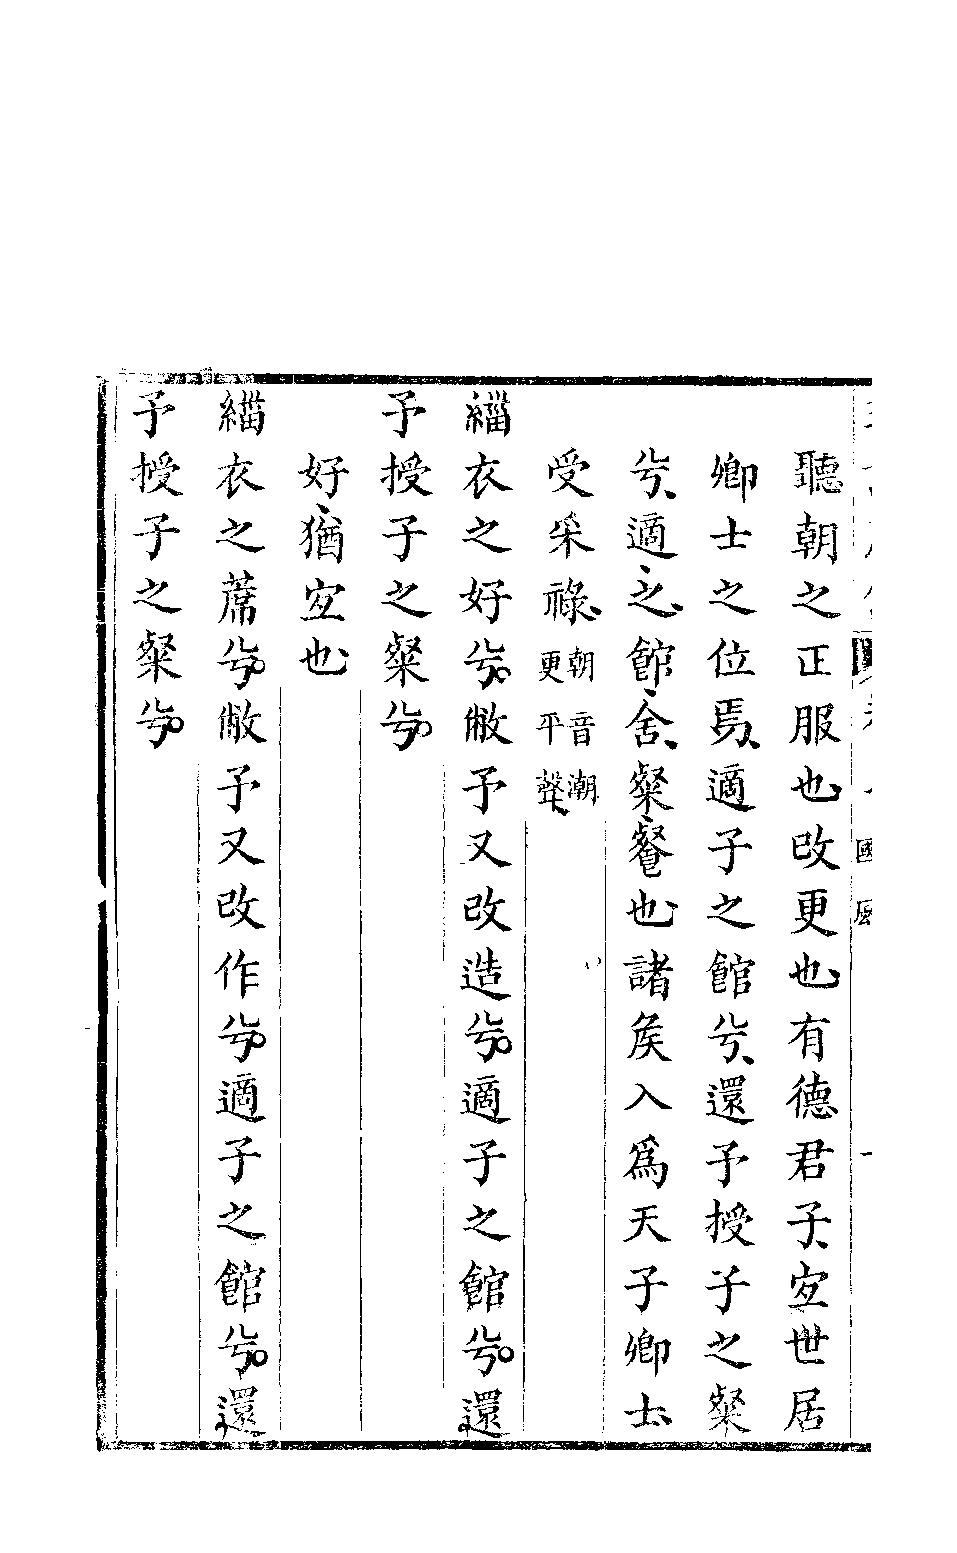 聽朝之正服也改更也有德君子宐世居
卿士之位焉適子之館兮還予授子之粲
兮適之館舍粲餐也諸矦入爲天子卿士
受采祿朝音潮更平聲
緇衣之好兮敝予又改造兮適子之館兮還
予授子之粲兮
好猶宐也
緇衣之蓆兮敝予又改作兮適子之館兮還
予授子之粲兮
國風